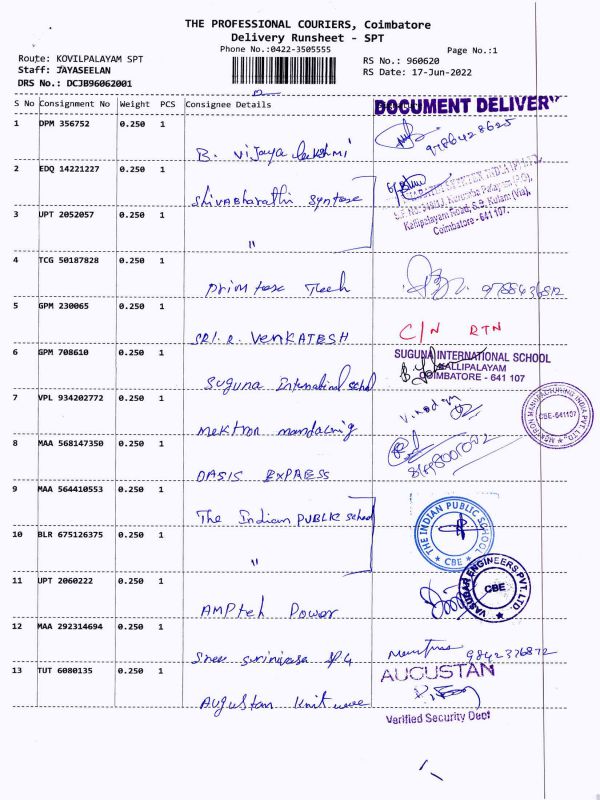 THE PROFESSIONAL COURIERS, Coimbatore
Delivery Runsheet - SPT
Phone No.:0422-3505555
Page No.:1
Route: KOVILPALAYAM SPT
RS No.: 960620
Staff: JAYASEELAN
RS Date: 17-Jun-2022
DRS No.: DCJB96062001
S No Consignment No Weight PCS Consignee Details
DOCUMENT DELIVERY
1 DPM 356752 0.250 1
B. Vijaya lakshmi
9786428625
2 EDQ 14221227 0.250 1
Shivabharathi Syntex
Kallipalayam Road, S.S. Kulam (Via),
Coimbatore - 641 107.
3 UPT 2052057 0.250 1
"
4 TCG 50187828 0.250 1
Primtex Tech
9788436812
5 GPM 230065 0.250 1
SRI. R. VENKATESH
C/N RTN
6 GPM 708610 0.250 1
Suguna International School
SUGUNA INTERNATIONAL SCHOOL
KALLIPALAYAM
COIMBATORE - 641 107
7 VPL 934202772 0.250 1
Mektron
MEKTRON MANUFACTURING INDIA PVT. LTD.
CBE-641107
8 MAA 568147350 0.250 1
OASIS EXPRESS
9 MAA 564410553 0.250 1
The Indian PUBLIC School
10 BLR 675126375 0.250 1
"
THE INDIAN PUBLIC SCHOOL
CBE
11 UPT 2060222 0.250 1
AMPteh Power
VASUBAR ENGINEERS PVT. LTD.
CBE
12 MAA 292314694 0.250 1
Sree Srinivasa
9842376872
13 TUT 6080135 0.250 1
Augustan Knit
AUGUSTAN
Verified Security Dept